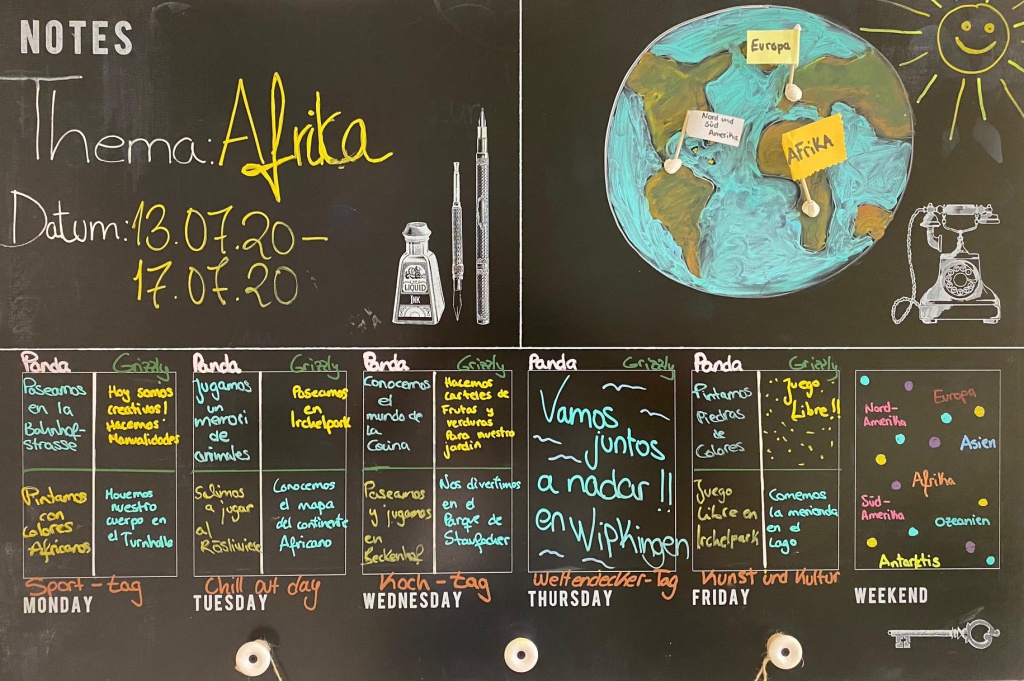 NOTES
Thema: Afrika
Datum: 13.07.20 –
17.07.20
LIQUID
INK
Europa
Nord und
Süd
Amerika
AFRIKA
Panda
Grizzly
Paseamos
en la
Bahnhof-
strasse
Hoy somos
creativos!
Hacemos
Manualidades
Pintamos
con
colores
Africanos
Movemos
nuestro
cuerpo en
el Turnhalle
Sport-tag
MONDAY
Panda
Grizzly
Jugamos
un
memori
de
animales
Paseamos
en
Irchelpark
Salimos
a jugar
al
Rösliwiese
Conocemos
el mapa
del continente
Africano
Chill out day
TUESDAY
Panda
Grizzly
Conocemos
el
mundo de
la
Cocina
Hacemos
carteles de
Frutas y
verduras
Para nuestro
jardín
Paseamos
y jugamos
en
Beckenhof
Nos divertimos
en el
Parque de
Staufacher
Koch-tag
WEDNESDAY
Panda
Grizzly
Vamos
juntos
a nadar!!
en Wipkingen
Weltendecker-Tag
THURSDAY
Panda
Grizzly
Pintamos
Piedras
de
Colores
Juego
Libre!!
Juego
Libre en
Irchelpark
Comemos
la merienda
en el
Lago
Kunst und Kultur
FRIDAY
Europa
Nord-
Amerika
Asien
Afrika
Süd-
Amerika
Ozeanien
Antarktis
WEEKEND